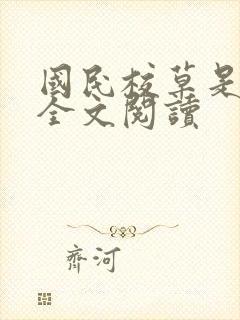 國民校草是
全文閱讀
齊河